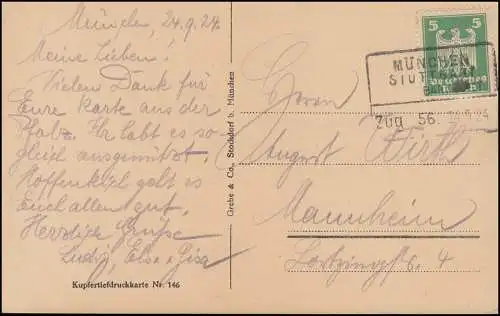 München, 24.9.24.
Meine Lieben!
Vielen Dank für
Eure Karte aus der
Pfalz. Ihr habt es so-
gleich ausgenützt.
Hoffentlich geht es
Euch allen gut.
Herzlige Grüsse
Ludwig, Else u. Gisa
Kupfertiefdruckkarte Nr. 146
Grebe & Co., Stockdorf b. München
5 5
Deutsches
Reich
MÜNCHEN
Zug 56 24
Herrn
August Wirth
Mannheim
Lortzingstr. 4